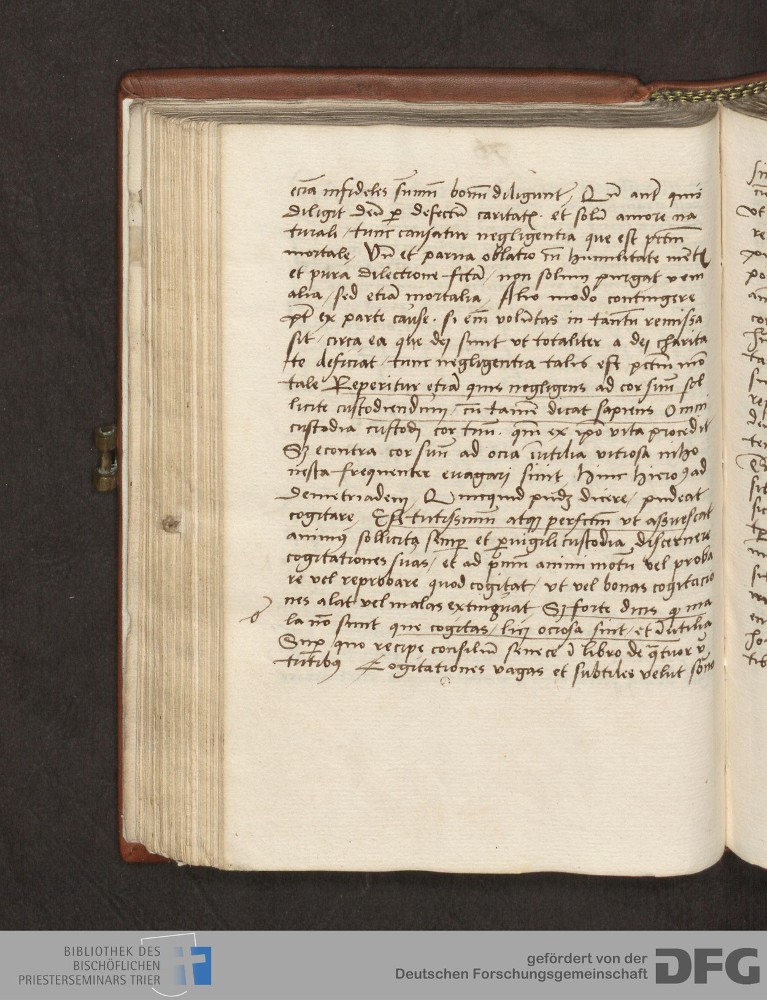 etiā infideles summū bonū diligunt / Qn̄ aut̄ quis
diligit deū ꝑ defectū caritatꝭ · et solū amore na
turali / tunc causatur negligentia que est pctm̄
mortale / Vn̄ et parua oblatio cū humilitate mentꝭ
et pura dilectione fctā / non solum purgat ueni
alia / sed etiā mortalia / Alio modo contingere
pt̄ ex parte cause · si em̄ volūtas in tantū remissa
sit / circa ea que dei sunt vt totaliter a dei charita
te deficiat / tunc negligentia talis est pctm̄ mor
tale Reperitur etiā quis negligens ad cor suū sol
licite custodiendum / cū tamē dicat sapiens Omni
custodia custodi cor tuū · qm̄ ex ipo vita procedit
Sꝫ econtra cor suū ad ocia īutilia vitiosa inho
nesta frequenter euagari sinit / Hinc Hieroꝰ ad
demetriadem / Quicquid pudꝫ dicere / pudeat
cogitare / Est tutissimū atqꝫ perfctm̄ vt assuescat
animus sollicita semꝑ et ꝑuigili custodia discernere
cogitationes suas / et ad pm̄ animi motū vel proba
re vel reprobare quod cogitat / vt vel bonas cogitacio
nes alat vel malas extinguat Sꝫ forte dicis qꝫ ma
la nō sunt que cogitas / licꝫ ociosa sint / et īutilia
Suꝑ quo recipe consiliū senece ī libro de q̄tuor v̄
tutibus Cogitationes vagas et subtiles velut sōno
BIBLIOTHEK DES
BISCHÖFLICHEN
PRIESTERSEMINARS TRIER
gefördert von der
Deutschen Forschungsgemeinschaft
DFG